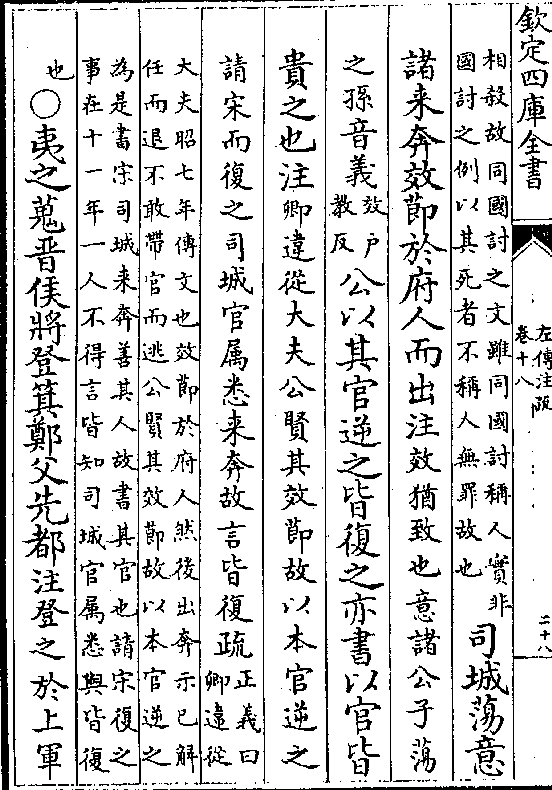 欽定四庫全書
左傳注疏
卷十八
二十八
相殺故同國討之文雖同國討稱人實非
國討之例以其死者不稱人無罪故也
司城蕩意
諸来奔效節於府人而出注效猶致也意諸公子蕩
之孫音義效戶
教反公以其官逆之皆復之亦書以官皆
貴之也注卿違從大夫公賢其效節故以本官逆之
請宋而復之司城官属悉来奔故言皆復疏正義曰
卿違從
大夫昭七年傳文也效節於府人然後出奔示已解
任而退不敢帶官而逃公賢其效節故以本官逆之
為是書宋司城来奔善其人故書其官也請宋復之
事在十一年一人不得言皆知司城官属悉與皆復
也
○夷之蒐晉侯將登箕鄭父先都注登之於上軍